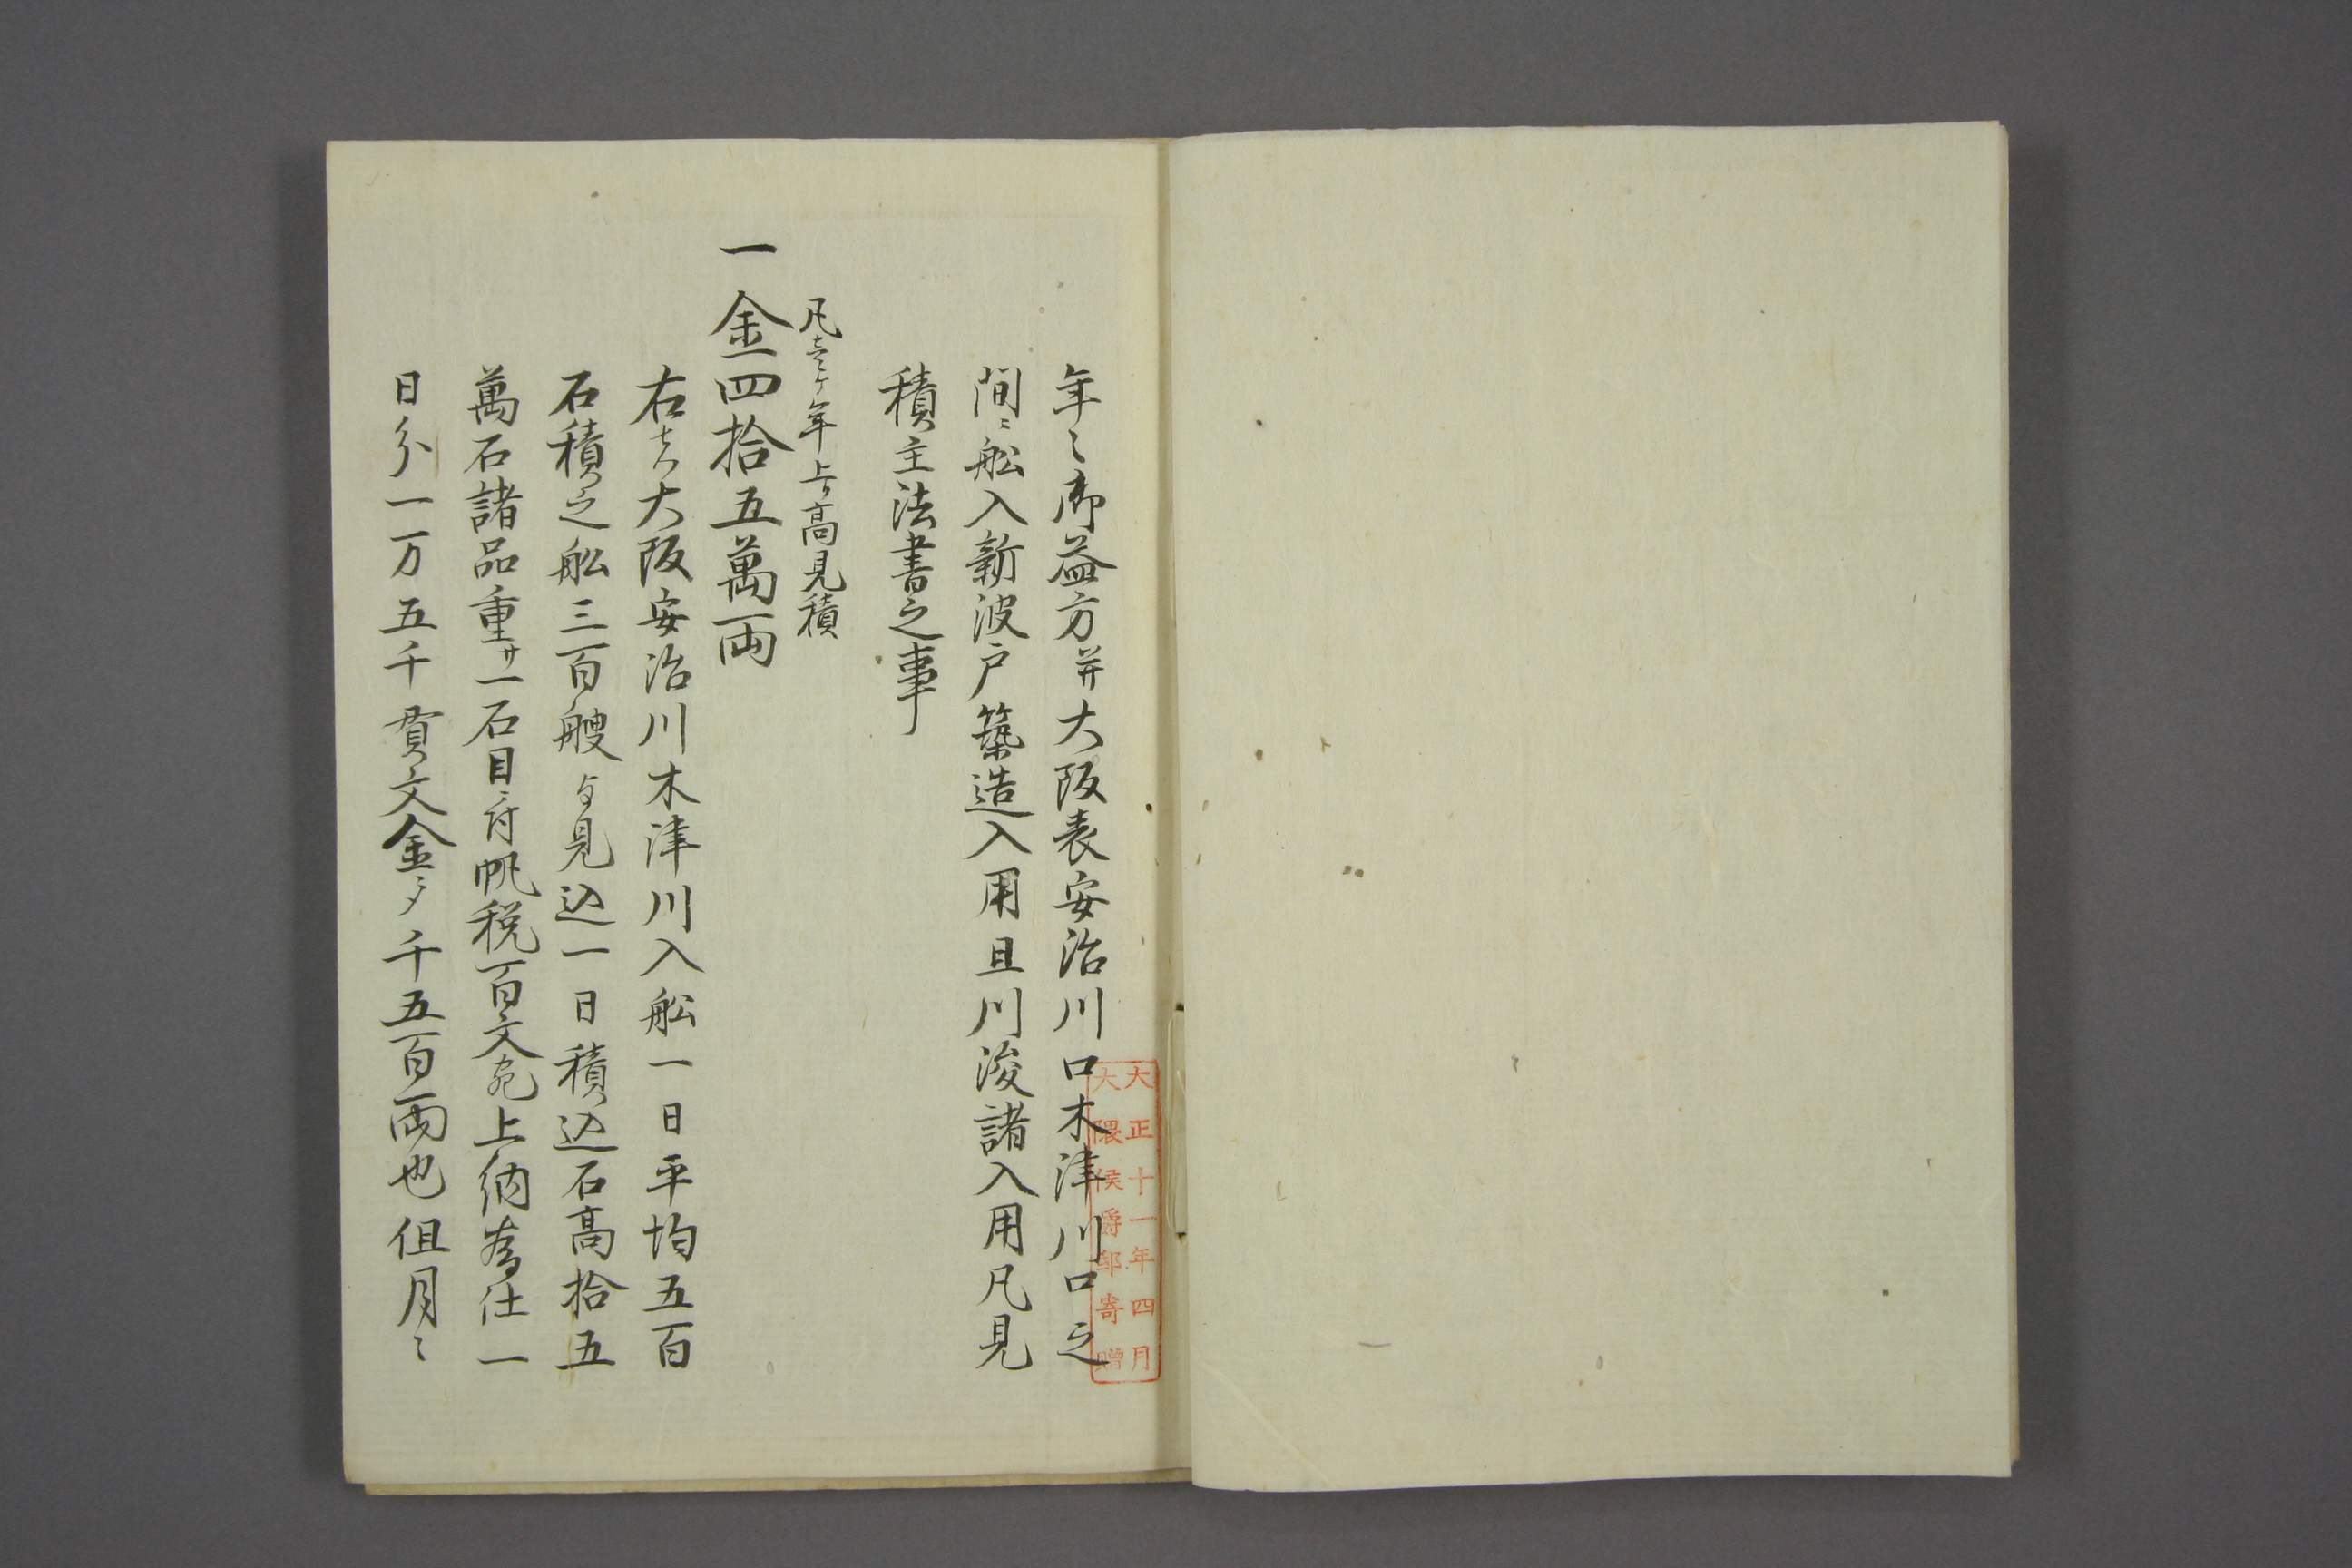 年〻御益方并大阪表安治川口木津川口之
間ニ舩入新波戸築造入用且川浚諸入用凡見
積主法書之事
凡壱ヶ年上ヶ高見積
一金四拾五萬両
右者大阪安治川木津川入舩一日平均五百
石積之舩三百艘与見込一日積込石高拾五
萬石諸品重サ一石目ニ付帆税百文宛上納為仕一
日分一万五千貫文金ニ〆千五百両也但月〻
大正十一年四月
大隈侯爵邸寄贈